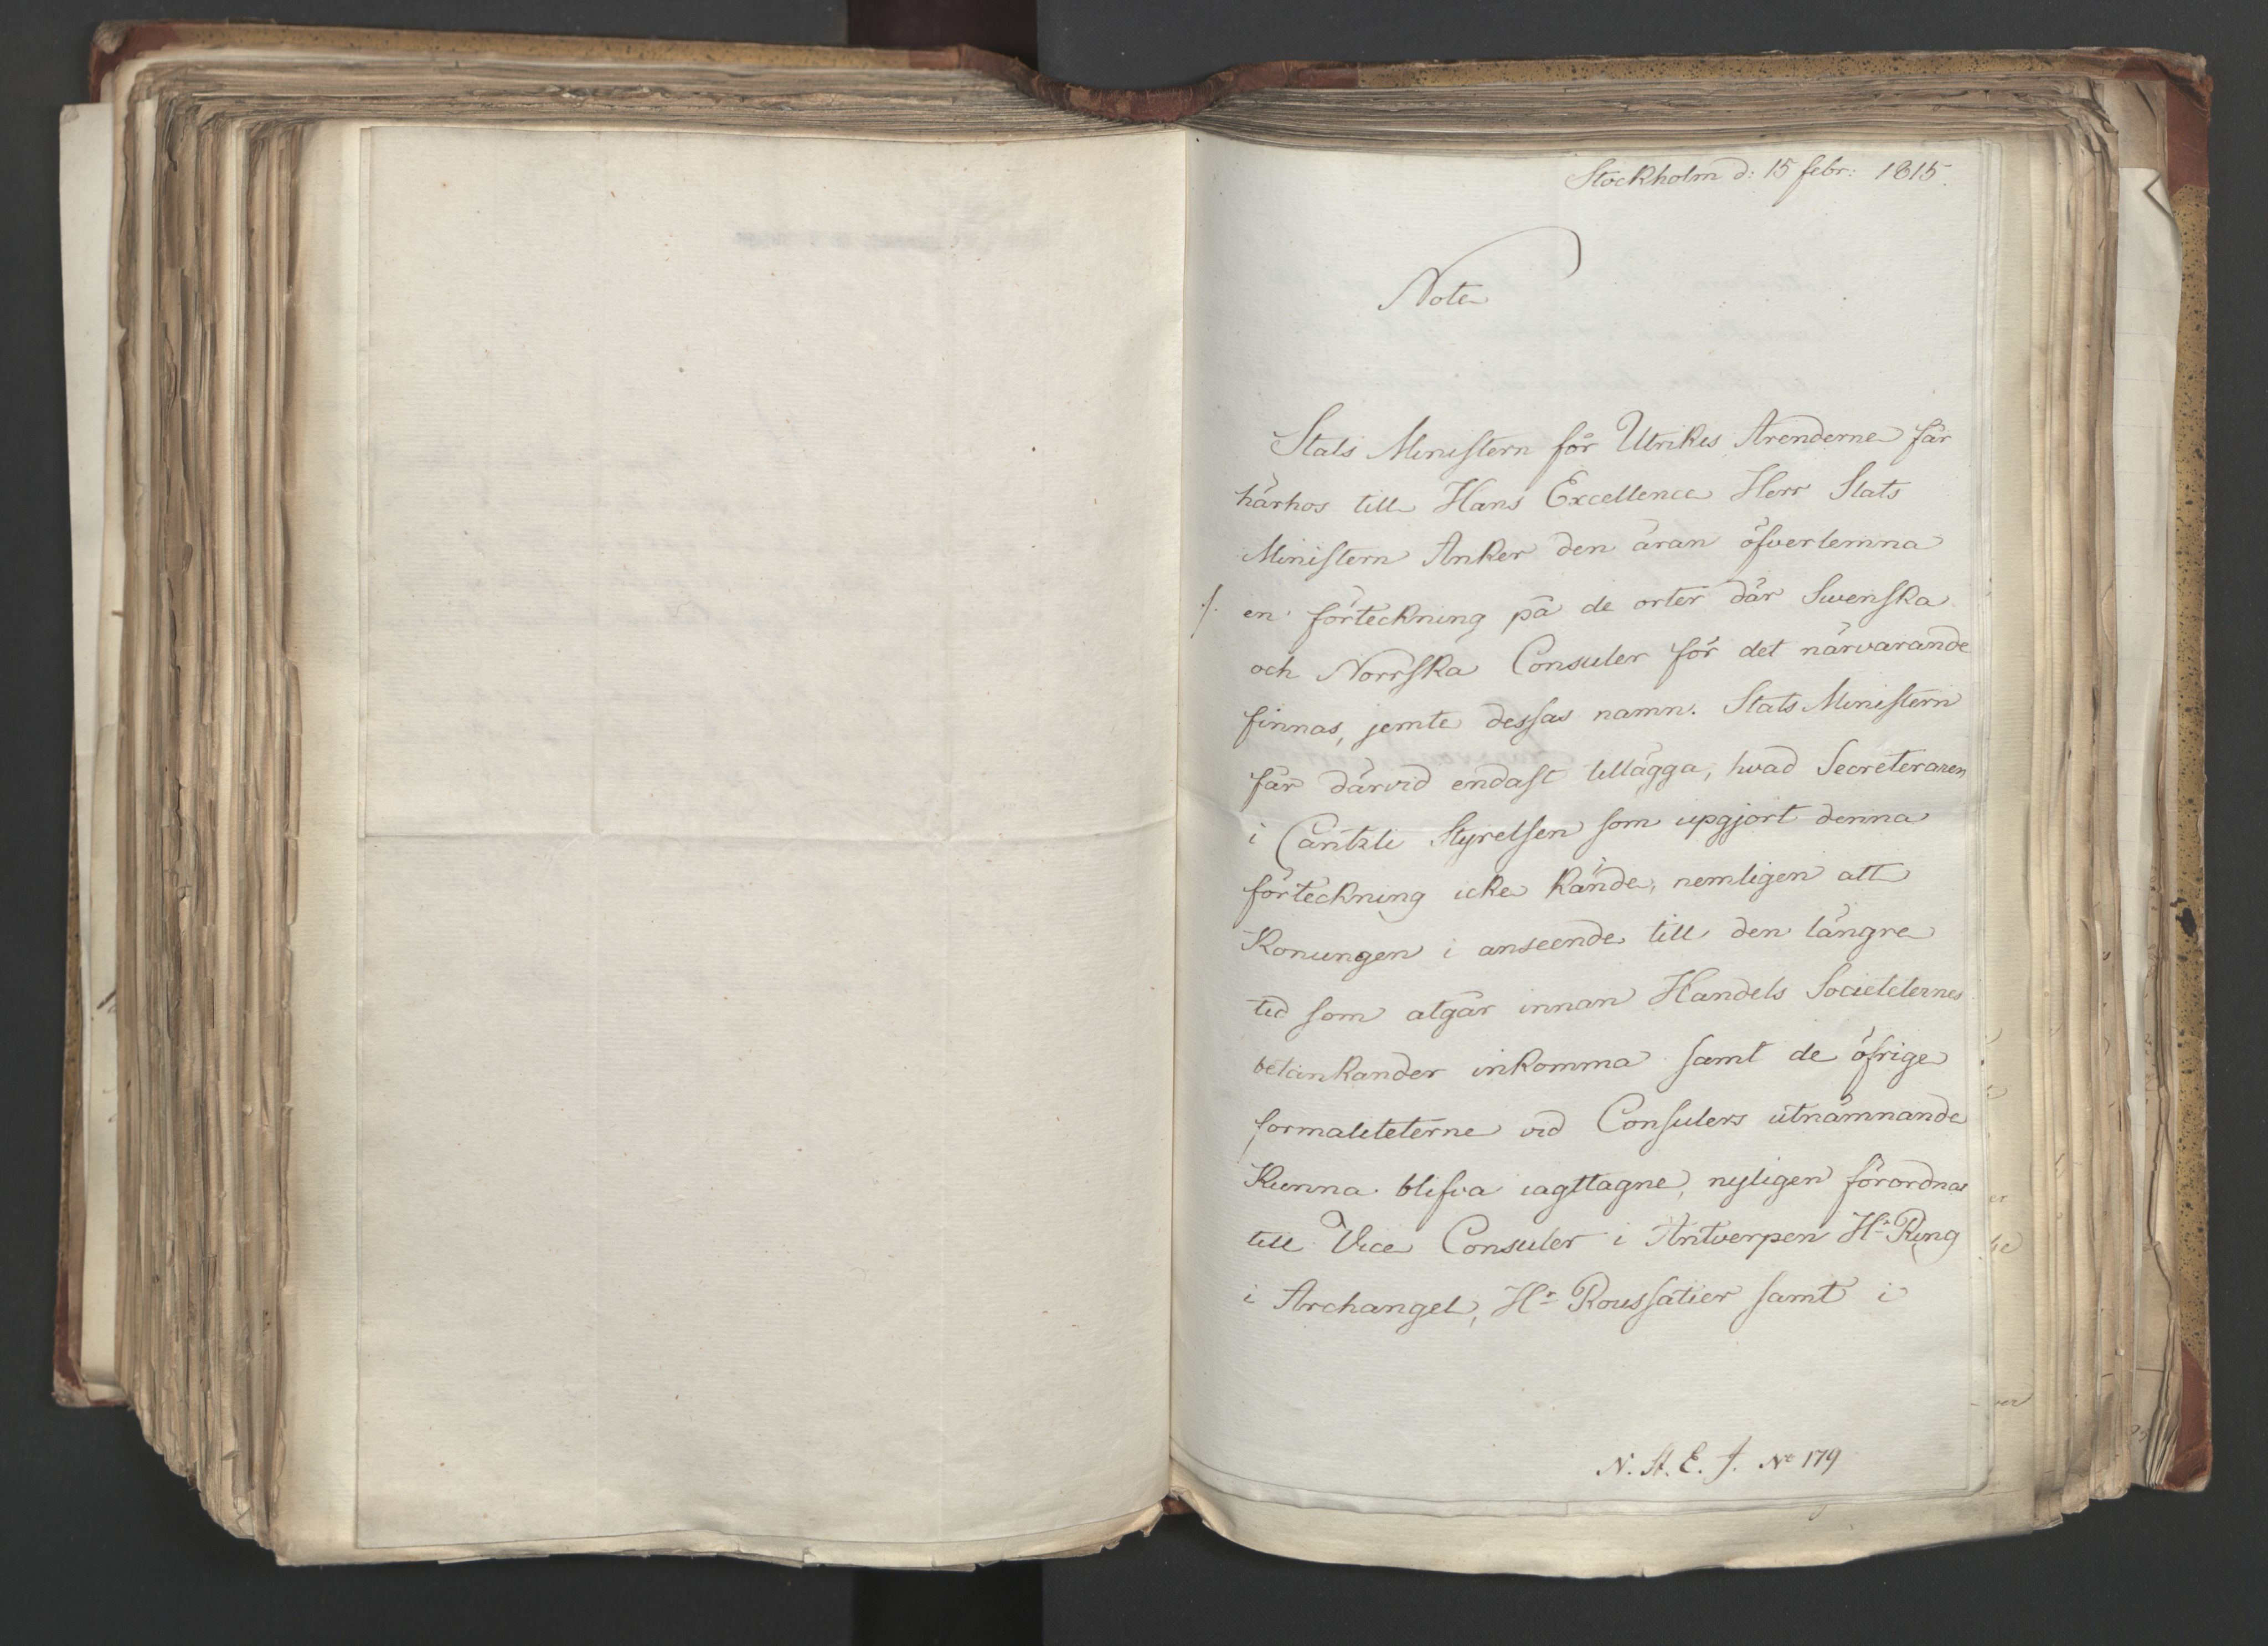 Stockholm d: 15 febr: 1815.
Note
Stats Ministern för Utrikes Ärenderne får
härhos till Hans Excellence Herr Stats
Ministern Anker den äran öfverlemna
./. en förteckning på de orter där Swenska
och Norrska Consuler för det närvarande
finnas, jemte dessas namn. Stats Ministern
får därvid endast tillägga, hvad Secreteraren
i Cantzli Styrelsen som upgjort denna
förteckning icke kände, nemligen att
Konungen i anseende till den längre
tid som åtgår innan Handels Societeternes
betänkander inkomma samt de öfrige
formaliteterne vid Consulers utnämnande
kunna blifva iagttagne, nyligen förordnat
till Vice Consuler i Antverpen Hr Ring
i Archangel, Hr Roussatier samt i
N. St. E. J. No 179